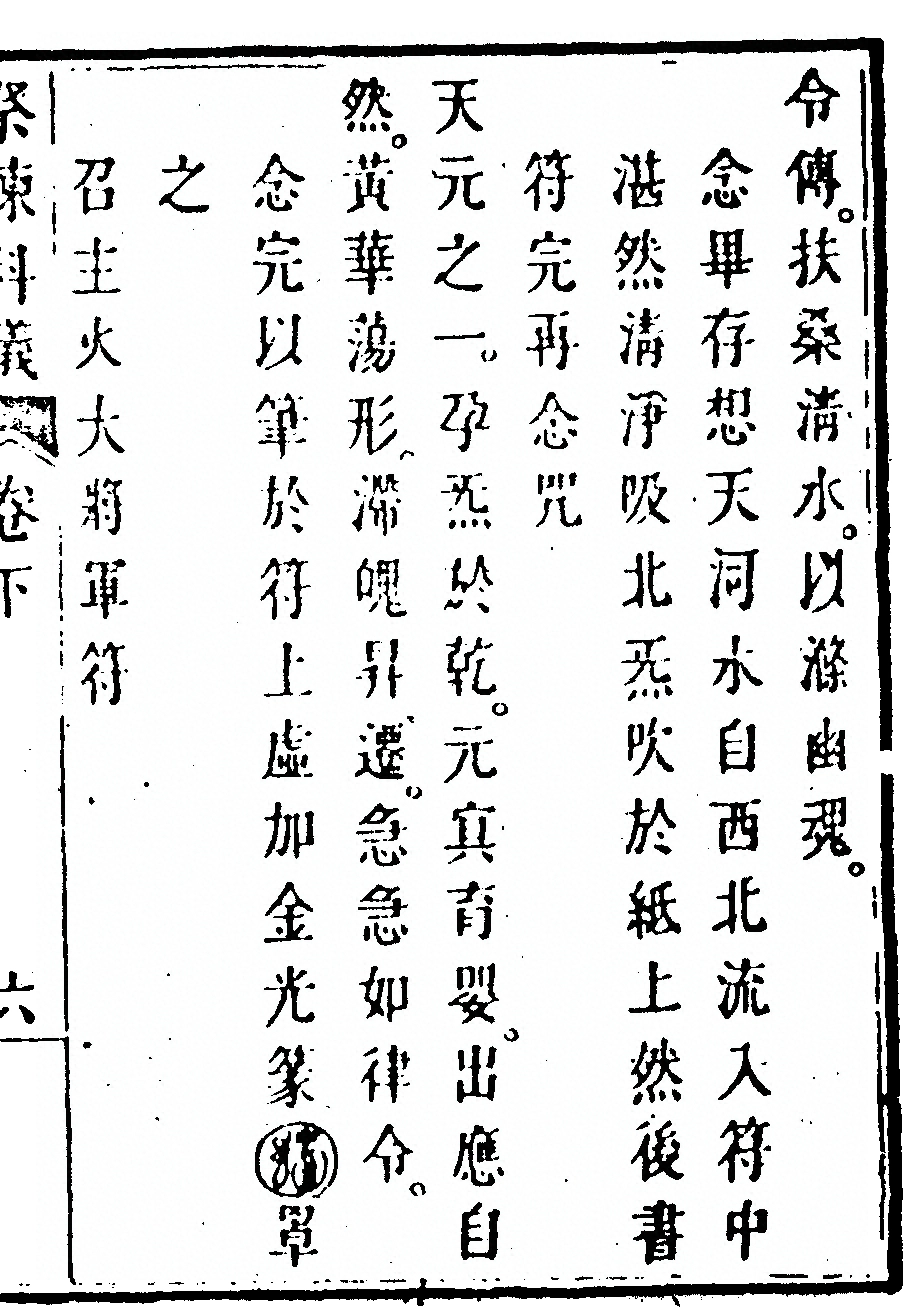 令傳。扶桑淸水。以滌幽魂。
念畢存想天河水自西北流入符中
湛然淸淨吸北炁吹於紙上然後書
符完再念咒
天元之一。孕炁於乾。元眞育嬰。出應自
然。黃華蕩形、滯魄昇遷。急急如律令。
念完以筆於符上虛加金光篆罩
之
召主火大將軍符
祭東科儀 卷下 六